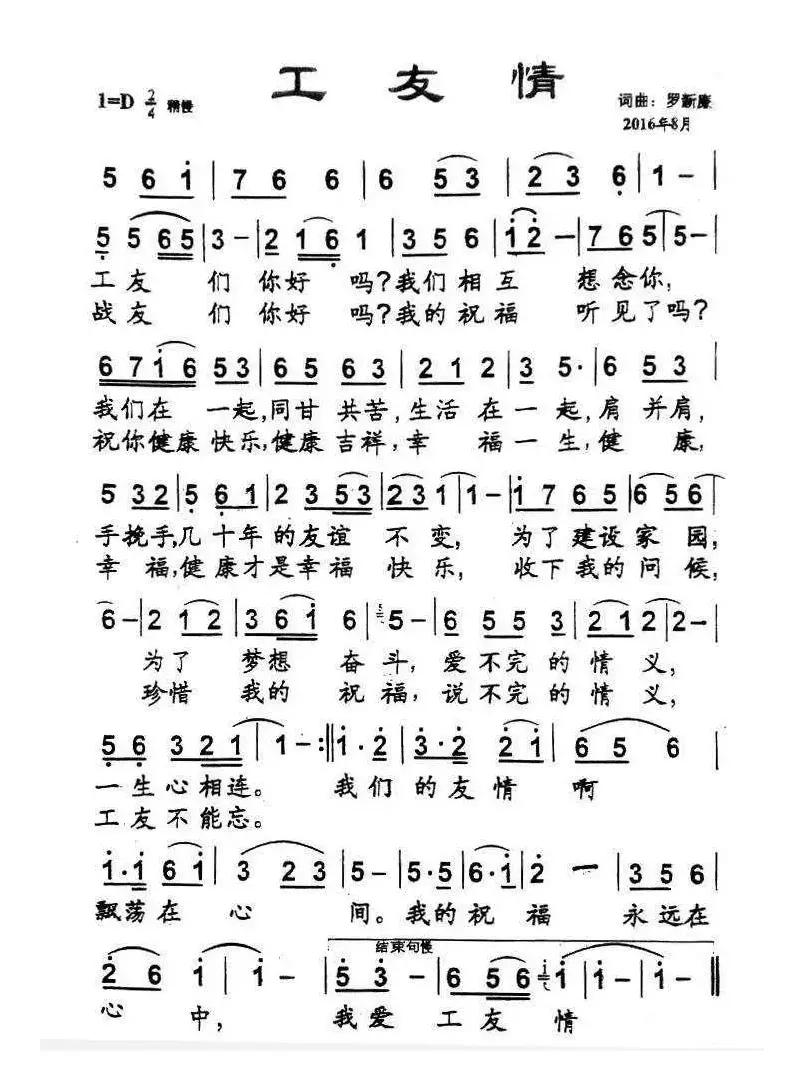 工友情
1=D 2/4 稍慢
词曲：罗新廉
2016年8月
5 6 i | 7 6 6 | 6 5 3 | 2 3 6 | 1 – |
5 5 6 5 | 3 – | 2 1 6 1 | 3 5 6 | i 2 – | 7 6 5 | 5 – |
工友 们 你好 吗?我们相互 想念你,
战友 们 你好 吗?我的祝福 听见了吗?
6 7 i 6 5 3 | 6 5 6 3 | 2 1 2 | 3 5· | 6 5 3 |
我们在 一起,同甘 共苦,生活 在一 起,肩 并肩,
祝你健康 快乐,健康 吉祥,幸 福一 生,健 康,
5 3 2 | 5 6 1 | 2 3 5 3 | 2 3 1 | 1 – | i 7 6 5 | 6 5 6 |
手挽手,几十年的友谊 不 变, 为了建设家 园,
幸 福,健康才是幸福 快乐, 收下我的问 候,
6 – | 2 1 2 | 3 6 i 6 | 5 – | 6 5 5 3 | 2 1 2 | 2 – |
为了 梦想 奋斗,爱不完的情 义,
珍惜 我的 祝福,说不完的情 义,
5 6 3 2 1 | 1 – :‖ i · 2 | 3 · 2 2 i | 6 5 6 |
一生心相连。 我们的友情 啊
工友不能忘。
i · i 6 i | 3 2 3 | 5 – | 5 · 5 | 6 · i | 2 – | 3 5 6 |
飘荡在 心 间。我的祝 福 永远在
结束句慢
2 6 i | i – | 5 3 – | 6 5 6 | i | i – | i – ‖
心 中, 我爱 工友 情